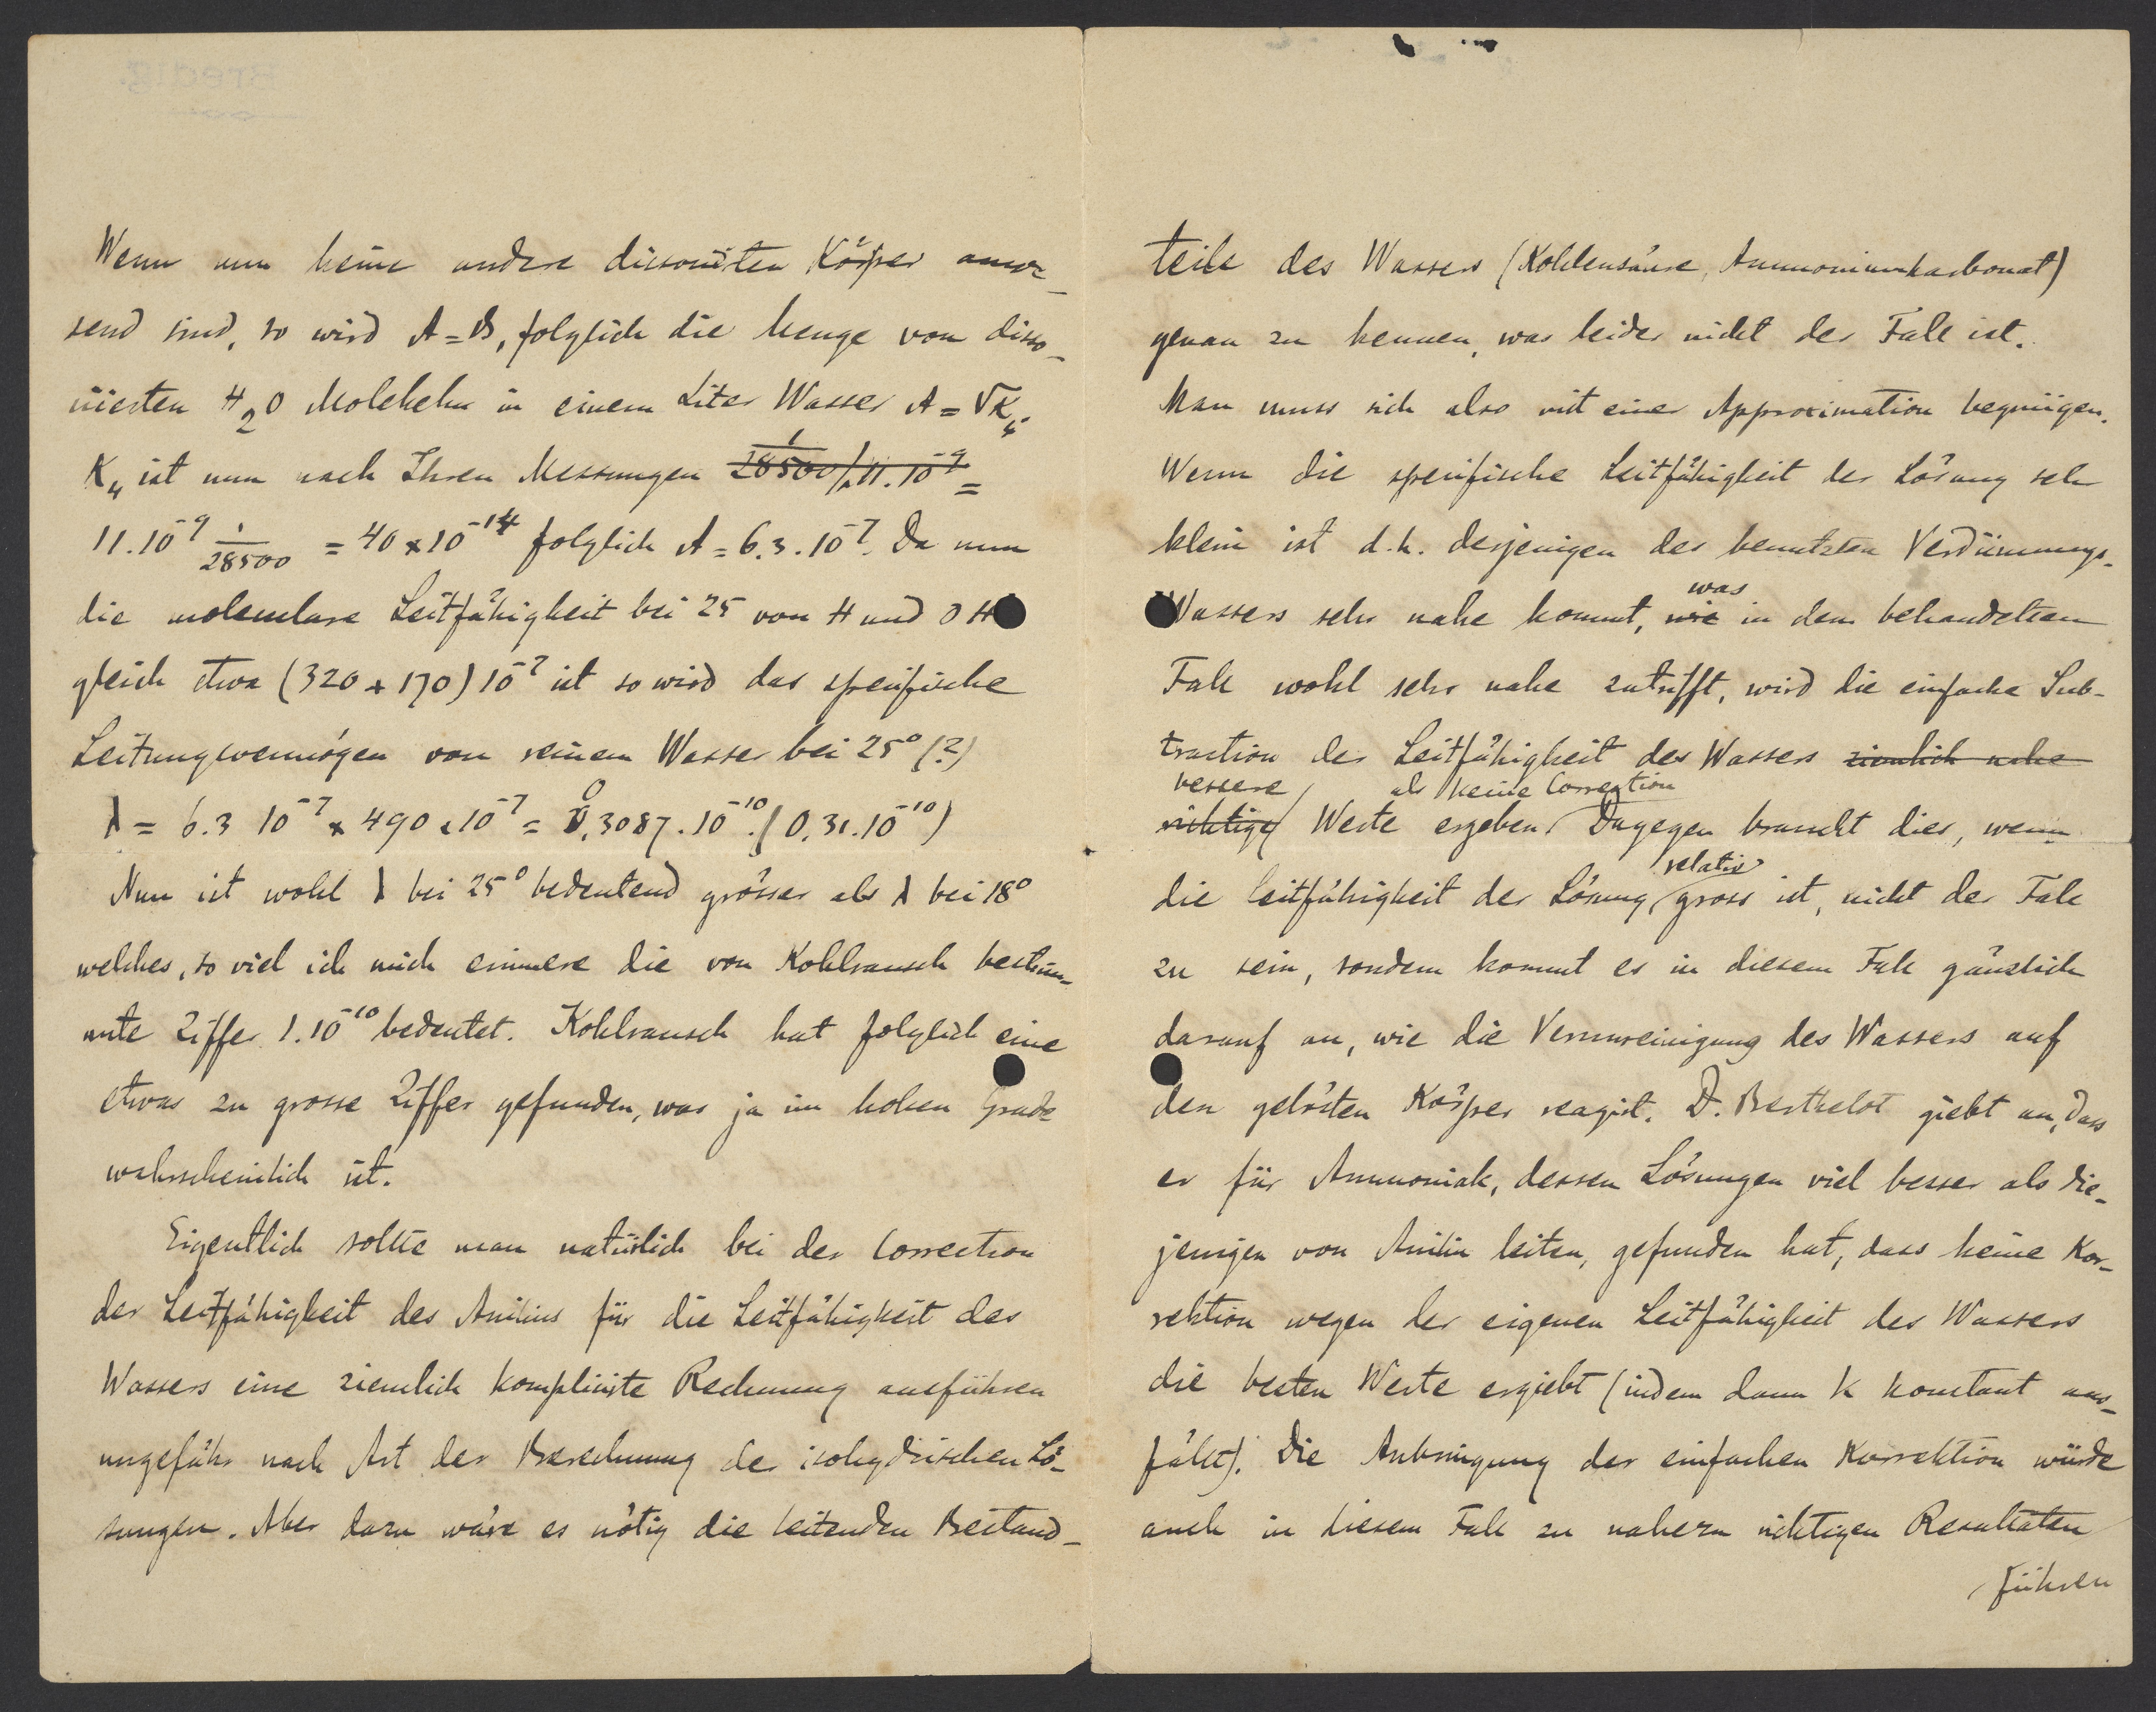 Wenn nun keine andere dissociirten Körper anwe-
send sind, so wird A = B, folglich die Menge von disso-
ciirten H2O Molekeln in einem Liter Wasser A = √K4.
K4 ist nun nach Ihren Messungen 1/28500 / 11.10^-9 =
11.10^-9 1/28500 = 40 x 10^-14 folglich A = 6.3.10^-7. Da nun
die moleculare Leitfähigkeit bei 25 von H und OH
gleich etwa (320 + 170) 10^-7 ist so wird das specifische
Leitungsvermögen von reinem Wasser bei 25° (?)
λ = 6.3 10^-7 x 490 x 10^-7 = 0,3087.10^-10. (0,31.10^-10)
Nun ist wohl λ bei 25° bedeutend grösser als λ bei 18°
welches, so viel ich mich erinnere die von Kohlrausch bestim-
mte Ziffer 1.10^-10 bedeutet. Kohlrausch hat folglich eine
etwas zu grosse Ziffer gefunden, was ja im hohen Grade
wahrscheinlich ist.
Eigentlich sollte man natürlich bei der Correction
der Leitfähigkeit des Anilins für die Leitfähigkeit des
Wassers eine ziemlich komplicirte Rechnung ausführen
ungefähr nach Art der Berechnung der isohydrischen Lö-
sungen. Aber dazu wäre es nötig die leitenden Bestand-
teile des Wassers (Kohlensäure, Ammoniumkarbonat)
genau zu kennen, was leider nicht der Fall ist.
Man muss sich also mit einer Approximation begnügen.
Wenn die specifische Leitfähigkeit der Lösung sehr
klein ist d.h. derjenigen des benutzten Verdünnungs-
was
Wassers sehr nahe kommt, wie in dem behandelten
Fall wohl sehr nahe zutrifft, wird die einfache Sub-
traction der Leitfähigkeit des Wassers ziemlich nahe
bessere als keine Correction
richtige Werte ergeben. Dagegen braucht dies, wenn
relativ
die Leitfähigkeit der Lösung gross ist, nicht der Fall
zu sein, sondern kommt es in diesem Fall gänzlich
darauf an, wie die Verunreinigung des Wassers auf
den gelösten Körper reagirt. D. Berthelot giebt an, dass
er für Ammoniak, dessen Lösungen viel besser als die-
jenigen von Anilin leiten, gefunden hat, dass keine Kor-
rektion wegen der eigenen Leitfähigkeit des Wassers
die besten Werte ergiebt (indem dann K konstant aus-
fällt). Die Anbringung der einfachen Korrektion würde
auch in diesem Fall zu nahezu richtigen Resultaten
führen